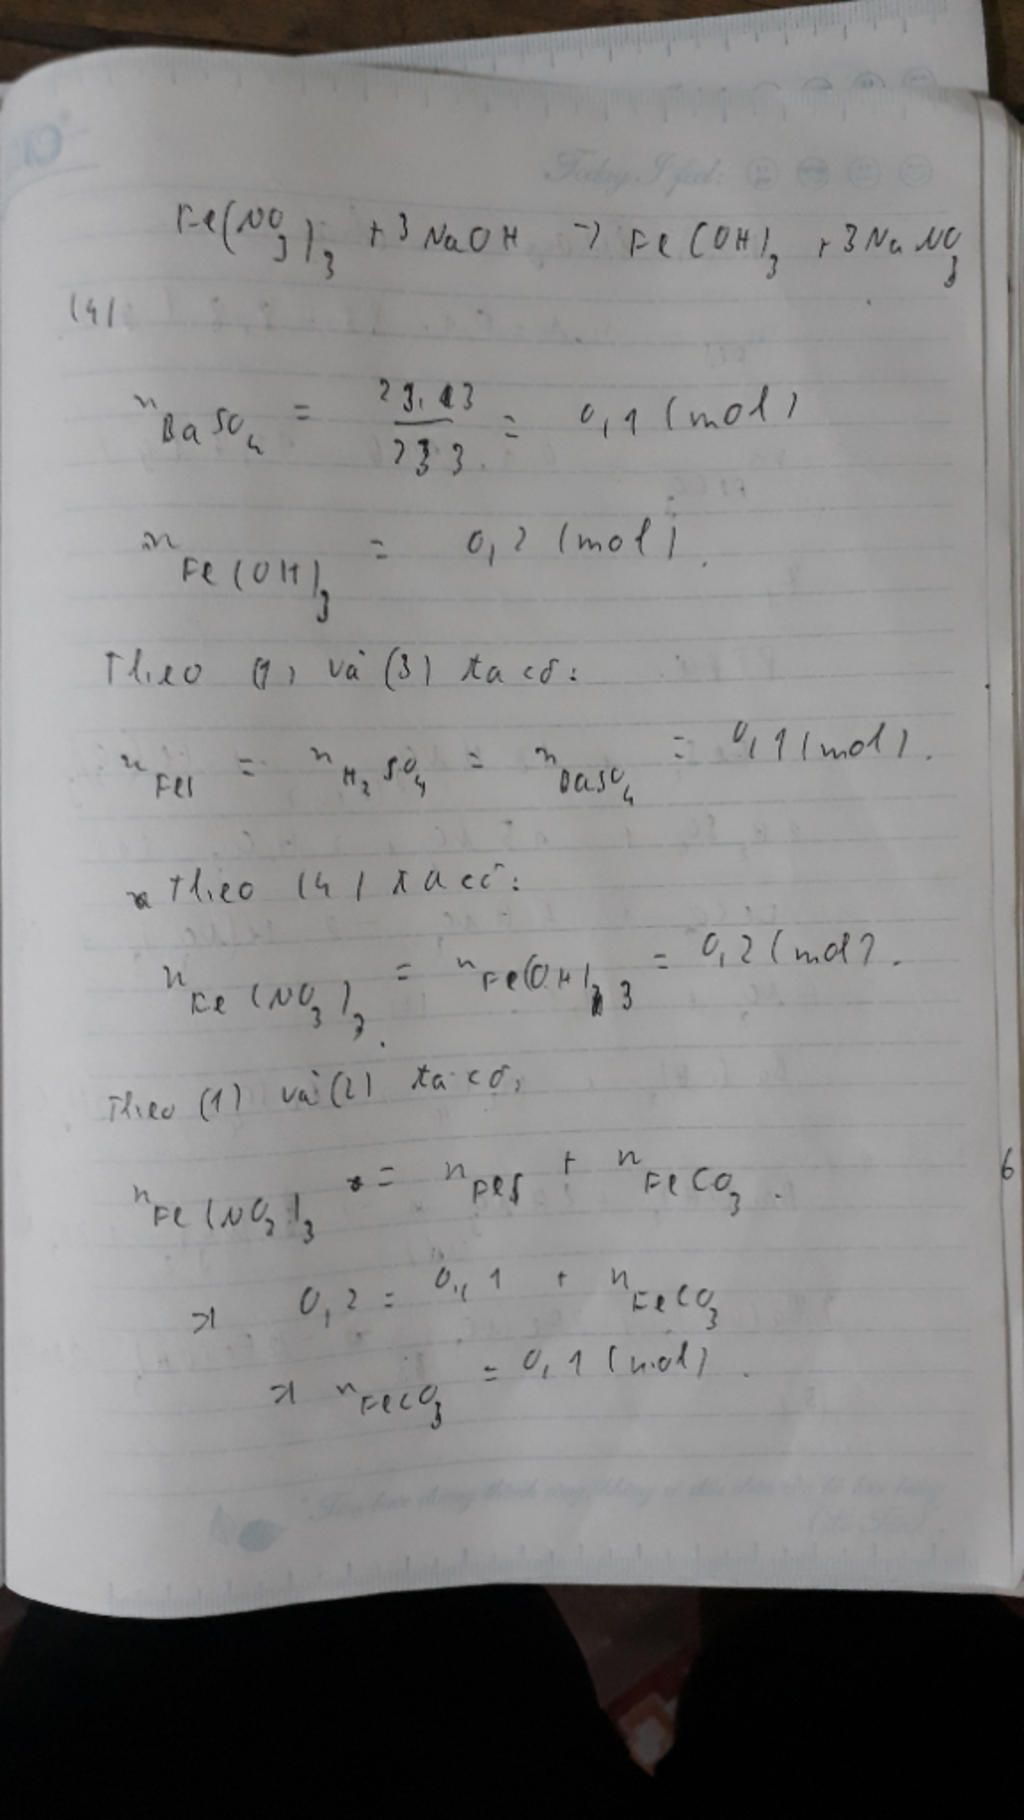 Today I feel:
Fe(NO3)3 + 3NaOH → Fe(OH)3 + 3NaNO3
(4)
nBaSO4 = 23,13 / 233 = 0,1 (mol)
nFe(OH)3 = 0,2 (mol).
Theo (1) và (3) ta có:
nFeS = nH2SO4 = nBaSO4 = 0,1 (mol).
Theo (4) ta có:
nFe(NO3)3 = nFe(OH)3 = 0,2 (mol).
Theo (1) và (2) ta có,
nFe(NO3)3 = nFeS + nFeCO3.
=> 0,2 = 0,1 + nFeCO3
=> nFeCO3 = 0,1 (mol).
6